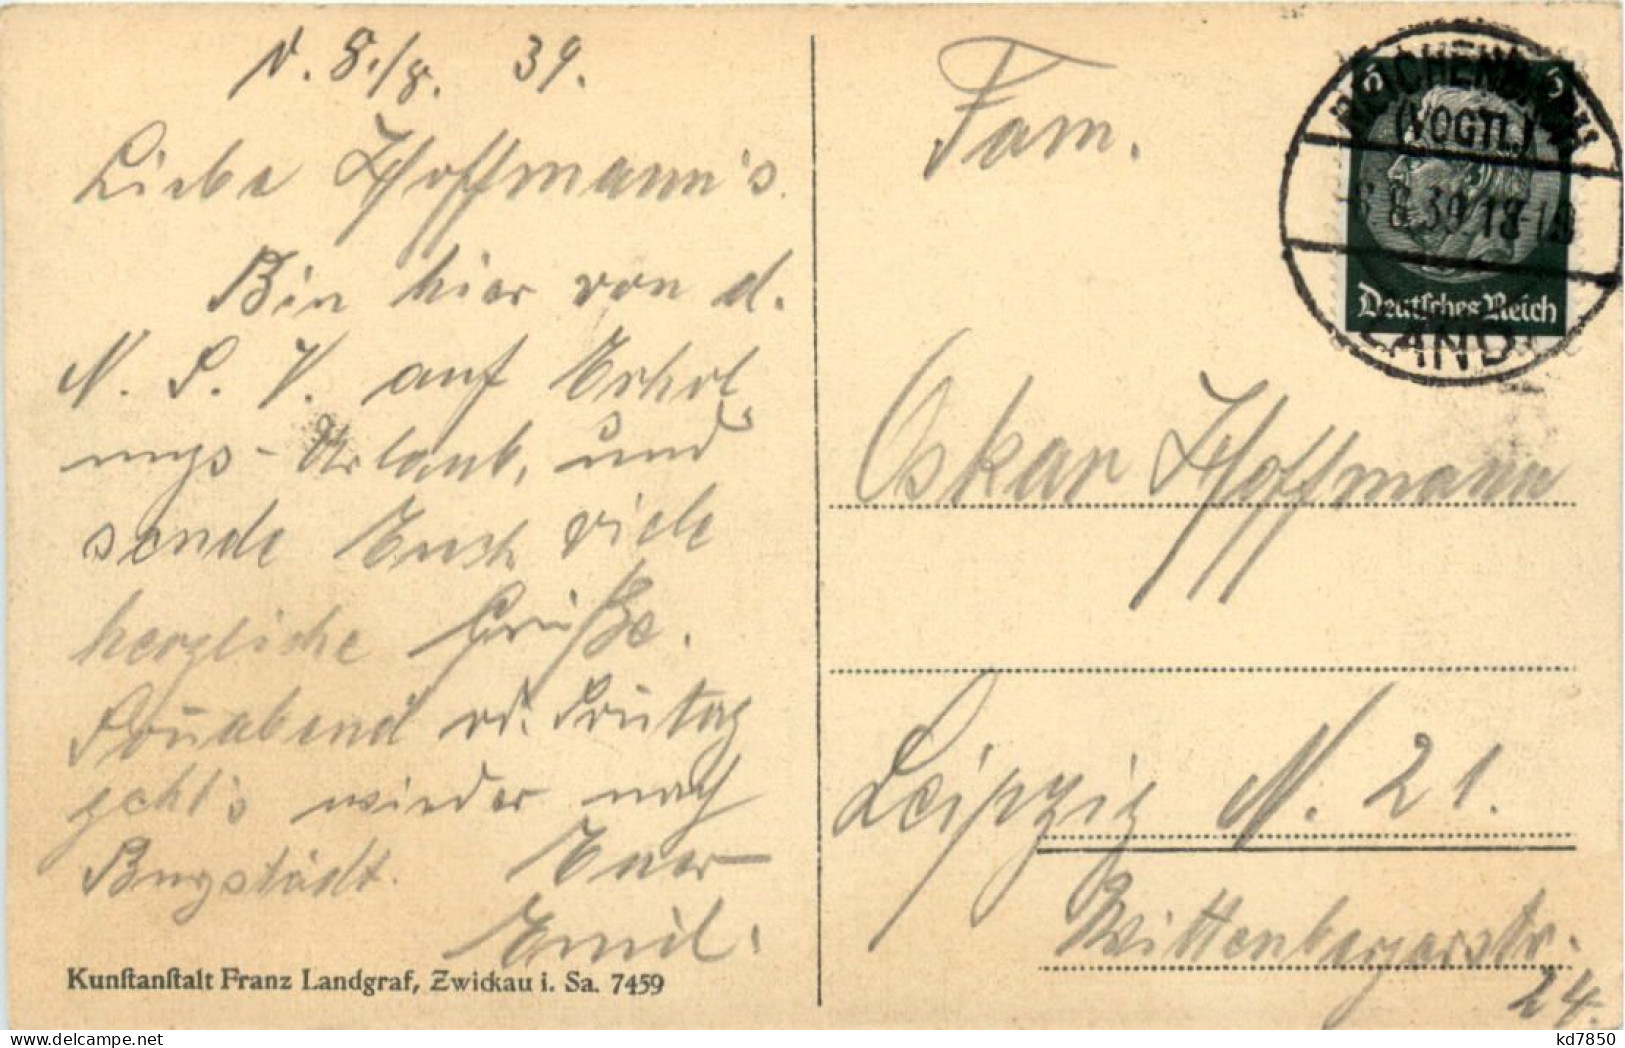 d. 8./8. 39.
Liebe Hoffmann's.
Bin hier von d.
N. S. V. auf Erhol
ungs-Urlaub, und
sende Euch viele
herzliche Grüße.
Sonnabend od. Sontag
geht's wieder nach
Burgstädt. Euer
Emil.
Kunstanstalt Franz Landgraf, Zwickau i. Sa. 7459
REICHENBACH
(VOGTL.)
8.39.18-19
LAND
6 6
Deutsches Reich
Fam.
Oskar Hoffmann
Leipzig N. 21.
Wittenbergerstr.
24.
kd7850